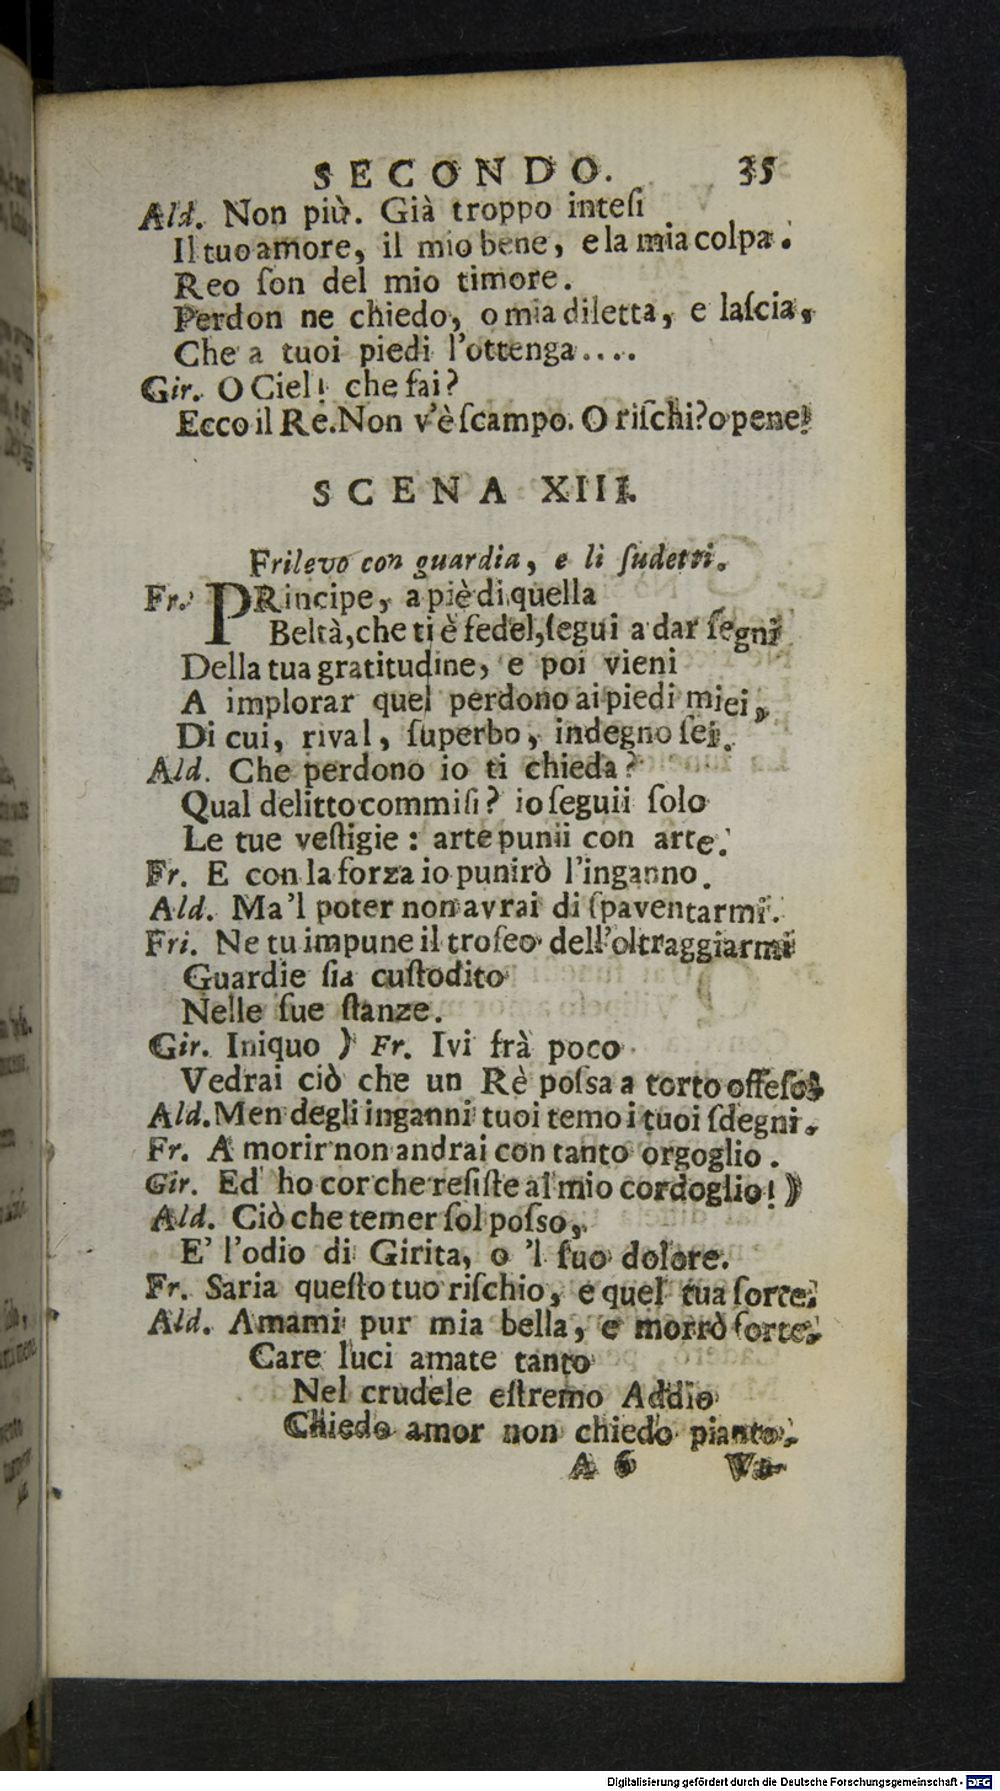 SECONDO. 35
Ald. Non più. Già troppo inteſi
Il tuo amore, il mio bene, e la mia colpa.
Reo ſon del mio timore.
Perdon ne chiedo, o mia diletta, e laſcia,
Che a tuoi piedi l'ottenga....
Gir. O Ciel! che fai?
Ecco il Re. Non v'è ſcampo. O riſchi? o pene!
SCENA XIII.
Frilevo con guardia, e li ſudetti.
Fr. PRincipe, a piè di quella
Beltà, che ti è fedel, ſegui a dar ſegni
Della tua gratitudine, e poi vieni
A implorar quel perdono ai piedi miei,
Di cui, rival, ſuperbo, indegno ſei.
Ald. Che perdono io ti chieda?
Qual delitto commiſi? io ſeguii ſolo
Le tue veſtigie: arte punii con arte.
Fr. E con la forza io punirò l'inganno.
Ald. Ma'l poter non avrai di ſpaventarmi.
Fri. Ne tu impune il trofeo dell'oltraggiarmi
Guardie ſia cuſtodito
Nelle ſue ſtanze.
Gir. Iniquo ) Fr. Ivi frà poco
Vedrai ciò che un Rè poſsa a torto offeſo.
Ald. Men degli inganni tuoi temo i tuoi ſdegni.
Fr. A morir non andrai con tanto orgoglio.
Gir. Ed ho cor che reſiſte al mio cordoglio! )
Ald. Ciò che temer ſol poſso,
E' l'odio di Girita, o 'l ſuo dolore.
Fr. Saria queſto tuo riſchio, e quel tua ſorte.
Ald. Amami pur mia bella, e morrò forte.
Care luci amate tanto
Nel crudele eſtremo Addio
Chiedo amor non chiedo pianto.
A 6
Digitalisierung gefördert durch die Deutsche Forschungsgemeinschaft - DFG